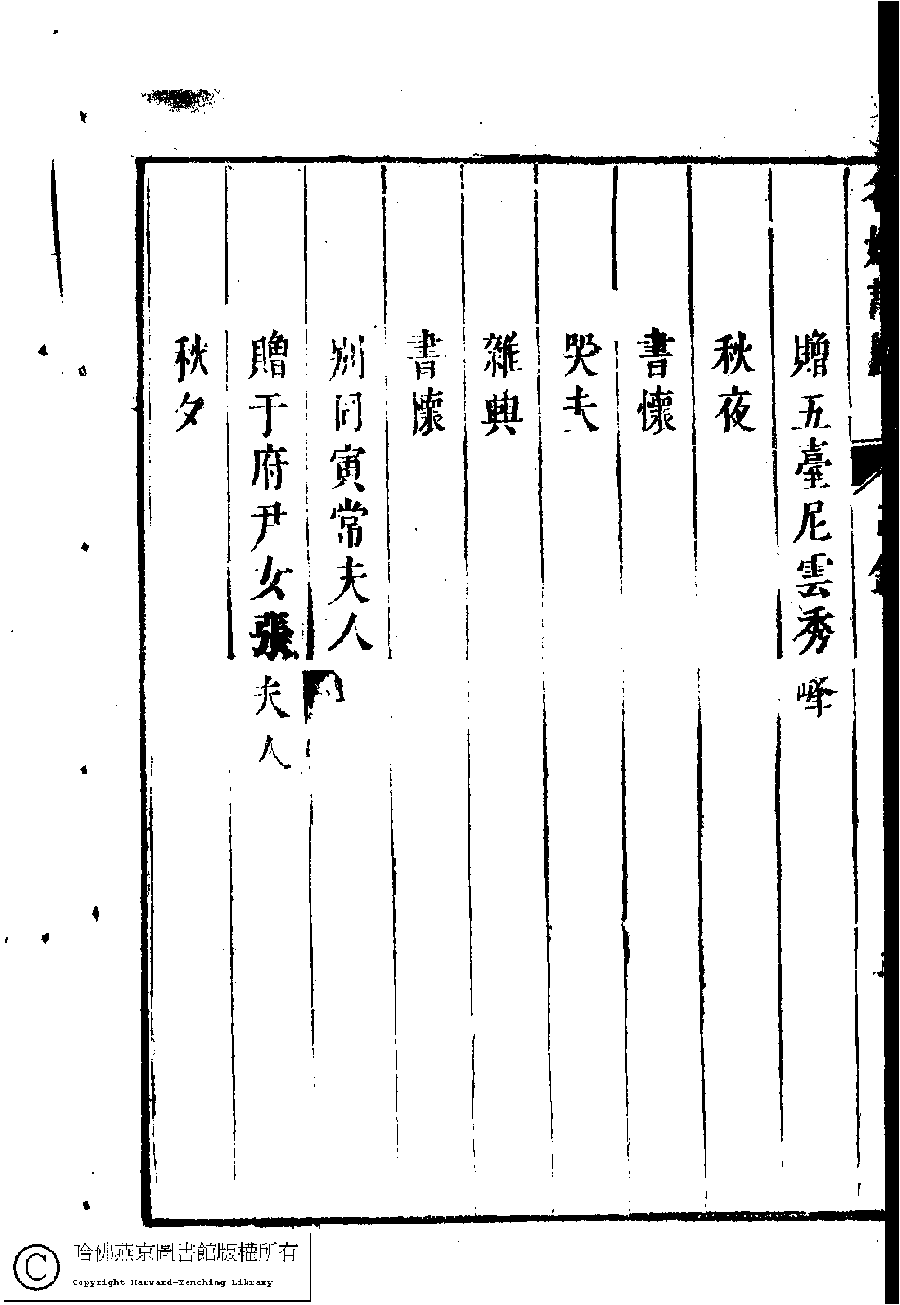 贈五臺尼雲秀峰
秋夜
書懷
哭夫
雜興
書懷
別同寅常夫人
贈于府尹女張夫人
秋夕
哈佛燕京圖書館版權所有
Copyright Harvard-Yenching Library